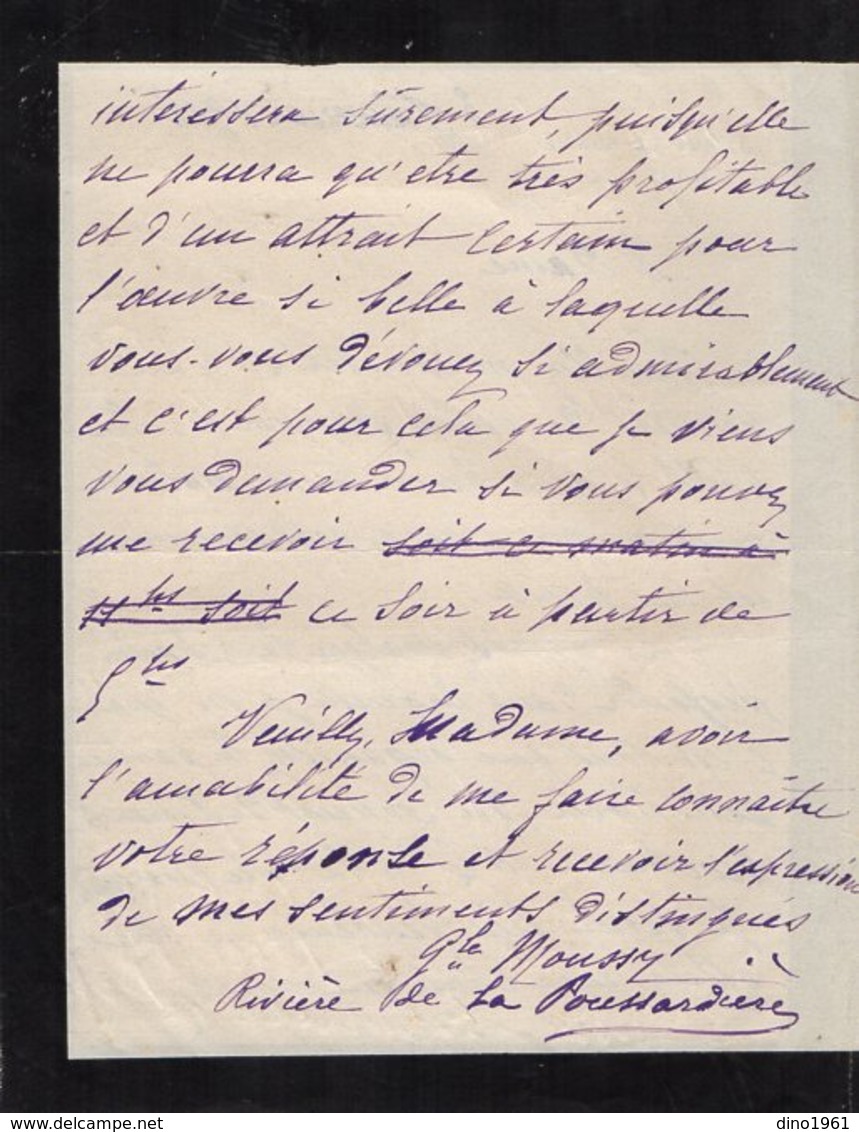 intéressera sûrement, puisqu'elle
ne pourra qu'etre très profitable
et d'un attrait certain pour
l'œuvre si belle à laquelle
vous-vous dévouez si admirablement
et c'est pour cela que je viens
vous demander si vous pouvez
me recevoir soit ce matin à
11hs soit ce soir à partir de
5hs
Veuillez, Madame, avoir
l'amabilité de me faire connaître
votre réponse et recevoir l'expression
de mes sentiments distingués
Gle Moussy
Rivière de la Poussardière
dino1961